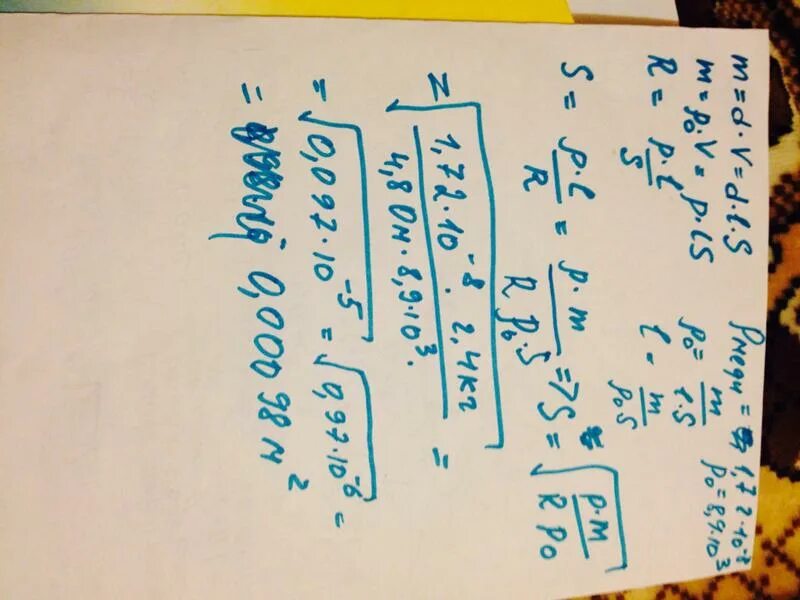 m = d · V = d · l · S
m = ρ₀ · V = ρ · lS
R = ρ · l / S
ρмеди = 1,72 · 10⁻⁸
ρ₀ = m / l · S ρ₀ = 8,9 · 10³
l = m / ρ₀ · S
S = ρ · l / R = ρ · m / R ρ₀ · S => S = √(ρ · m / R ρ₀)
= √(1,72 · 10⁻⁸ · 2,4 кг / 4,8 Ом · 8,9 · 10³ ·) =
= √(0,097 · 10⁻⁵) = √(0,97 · 10⁻⁶) =
= 0,00098 м²